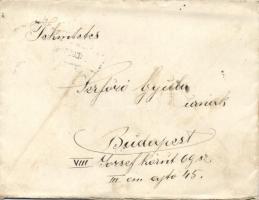 Tekintetes
Gyula
úrnak
Budapest
VIII József körút 69 sz.
III em ajtó 45.